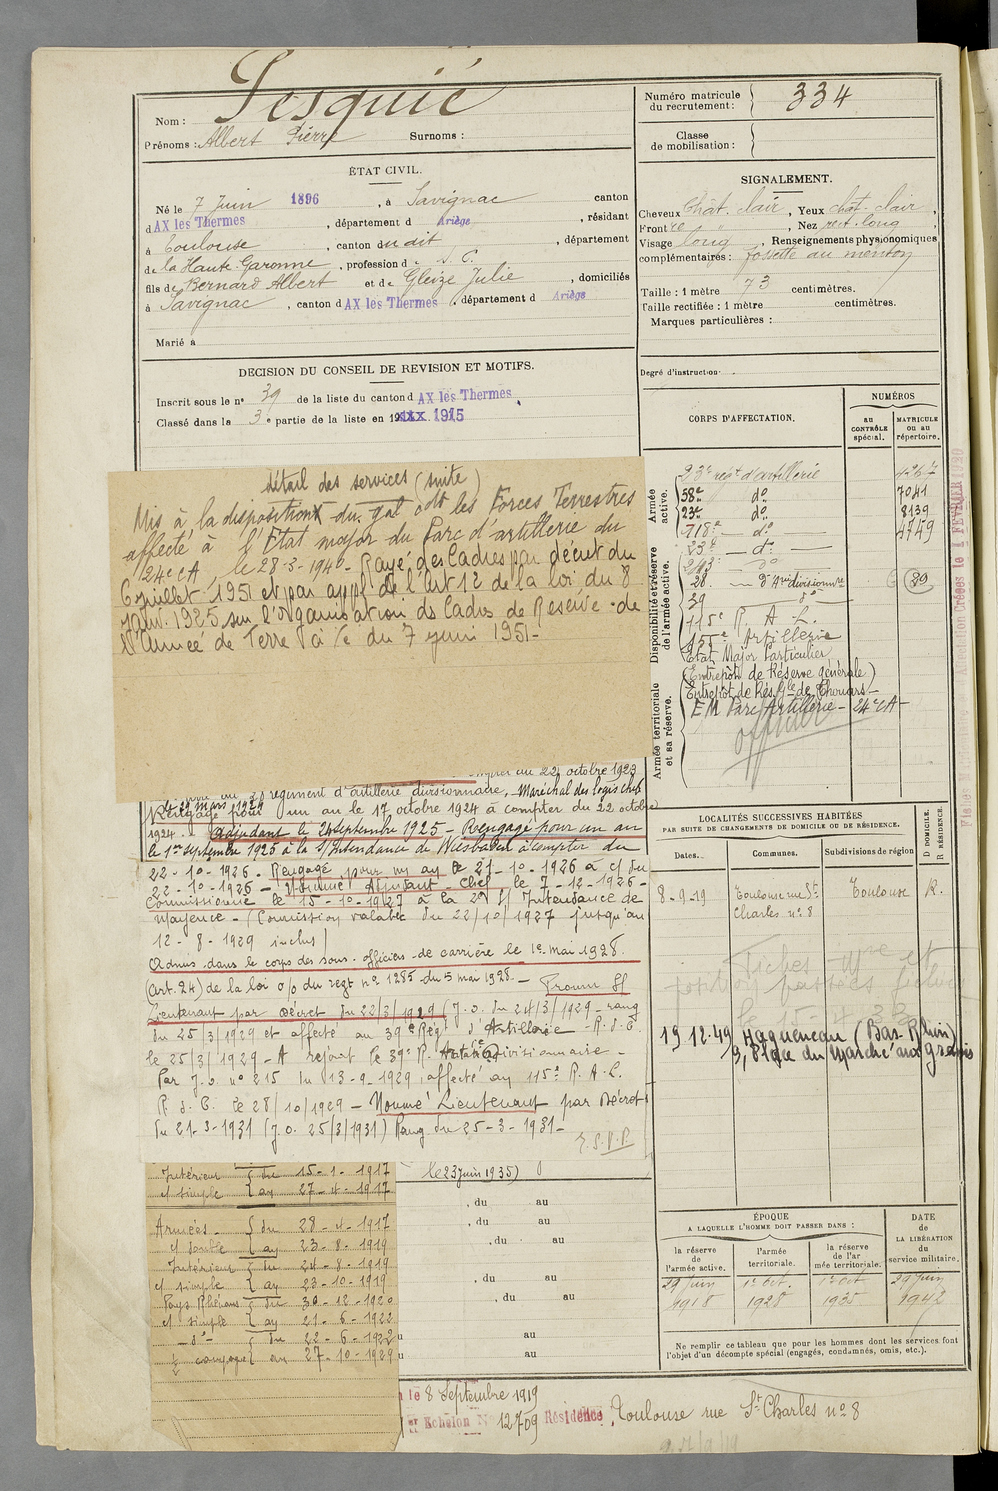 Nom : Lesquié
Prénoms : Albert Pierre Surnoms :
Numéro matricule du recrutement : 334
Classe de mobilisation :
ÉTAT CIVIL.
Né le 7 Juin 1896, à Savignac canton
d AX les Thermes, département d Ariège, résidant
à Toulouse, canton du dit, département
de la Haute-Garonne, profession d S. C.
fils de Bernard Albert et de Gleize Julie, domiciliés
à Savignac, canton d AX les Thermes, département d Ariège
Marié à
SIGNALEMENT.
Cheveux Chât. clair, Yeux chât. clair,
Front, Nez rect. long
Visage long, Renseignements physionomiques
complémentaires : fossette au menton
Taille : 1 mètre 73 centimètres.
Taille rectifiée : 1 mètre centimètres.
Marques particulières :
Degré d'instruction
DÉCISION DU CONSEIL DE REVISION ET MOTIFS.
Inscrit sous le n° 39 de la liste du canton d AX les Thermes
Classé dans la 3e partie de la liste en 1915
CORPS D'AFFECTATION.
NUMÉROS
AU CONTRÔLE spécial.
MATRICULE ou au répertoire.
Armée active.
Disponibilité et réserve de l'armée active.
Armée territoriale et sa réserve.
23e régt d'artillerie 4267
58e do 7041
23e do 8139
718e do 4749
23e do
243 do
28 do d'Arie divisionnre 89
39 do
115e R. A. L.
155e Artillerie
Etat Major Particulier
(Entrepôt de Réserve générale)
Entrepôt de Rés. Gle de Thouars
E M Parc Artillerie - 24e CA
officier
détail des services (suite)
Mis à la disposition du gal cdt les Forces Terrestres
affecté à l'Etat major du Parc d'artillerie du
24e CA, le 28-3-1940 - Rayé des Cadres par décret du
6 juillet 1951 et par appl. de l'art 12 de la loi du 8
janv. 1925 sur l'organisation des Cadres de Réserve de
l'Armée de Terre à /c du 7 juin 1951-
du 22 octobre 1923
régiment d'artillerie divisionnaire, Maréchal des logis chef
le 29 mars 1924
Rengagé pour un an le 17 octobre 1924 à compter du 22 octobre
1924. Adjudant le 24 septembre 1925 - Rengagé pour un an
le 1er septembre 1925 à la S/Intendance de Wiesbaden à compter du
22-10-1925 - Rengagé pour un an le 21-10-1926 à c/ du
22-10-1926 - Nommé Adjudant-chef le 7-12-1926 -
Commissionné le 15-10-1927 à la 2e S/ Intendance de
Mayence - (Commission valable du 22/10/1927 jusqu'au
12-8-1929 inclus)
Admis dans le corps des sous-officiers de carrière le 1er mai 1928
(art. 24) de la loi o/o du regt n° 1285 du 5 mai 1928. - Promu S/
Lieutenant par Décret du 22/3/1929 (J.O. du 24/3/1929 - rang
du 25/3/1929 et affecté au 39e Régt d'Artillerie - R.d.C.
le 25/3/1929 - A rejoint le 39e R. Artie Divisionnaire -
Par J.O. n° 215 du 13-9-1929, affecté au 115e R.A.L.
R.d.C. le 28/10/1929 - Nommé Lieutenant par Décret
du 21-3-1931 (J.O. 25/3/1931) Rang du 25-3-1931 -
T.S.V.P.
le 23 Juin 1935)
Intérieur du 15-1-1917
c/ simple au 27-4-1917
Armées du 28-4-1917
c/ double au 23-8-1919
Intérieur du 24-8-1919
c/ simple au 23-10-1919
Pays Rhénans du 30-12-1920
c/ simple au 21-6-1922
- do - du 22-6-1922
½ campagne au 27-10-1929
, du au
, du au
, du au
, du au
, du au
au
au
LOCALITÉS SUCCESSIVES HABITÉES
PAR SUITE DE CHANGEMENTS DE DOMICILE OU DE RÉSIDENCE.
Dates. Communes. Subdivisions de région D DOMICILE. R RÉSIDENCE.
8-9-19 Toulouse rue St Charles n° 8 Toulouse R.
19.12.49 Haguenau (Bas-Rhin)
9, Place du Marché aux grains
ÉPOQUE
A LAQUELLE L'HOMME DOIT PASSER DANS :
la réserve de l'armée active.
l'armée territoriale.
la réserve de l'armée territoriale.
DATE de LA LIBÉRATION du service militaire.
29 Juin 1918
1er Oct. 1928
1er Oct 1935
29 Juin 1942
Ne remplir ce tableau que pour les hommes dont les services font
l'objet d'un décompte spécial (engagés, condamnés, omis, etc.).
le 8 Septembre 1919
Echelon N° 12709 Résidence Toulouse rue St Charles n° 8